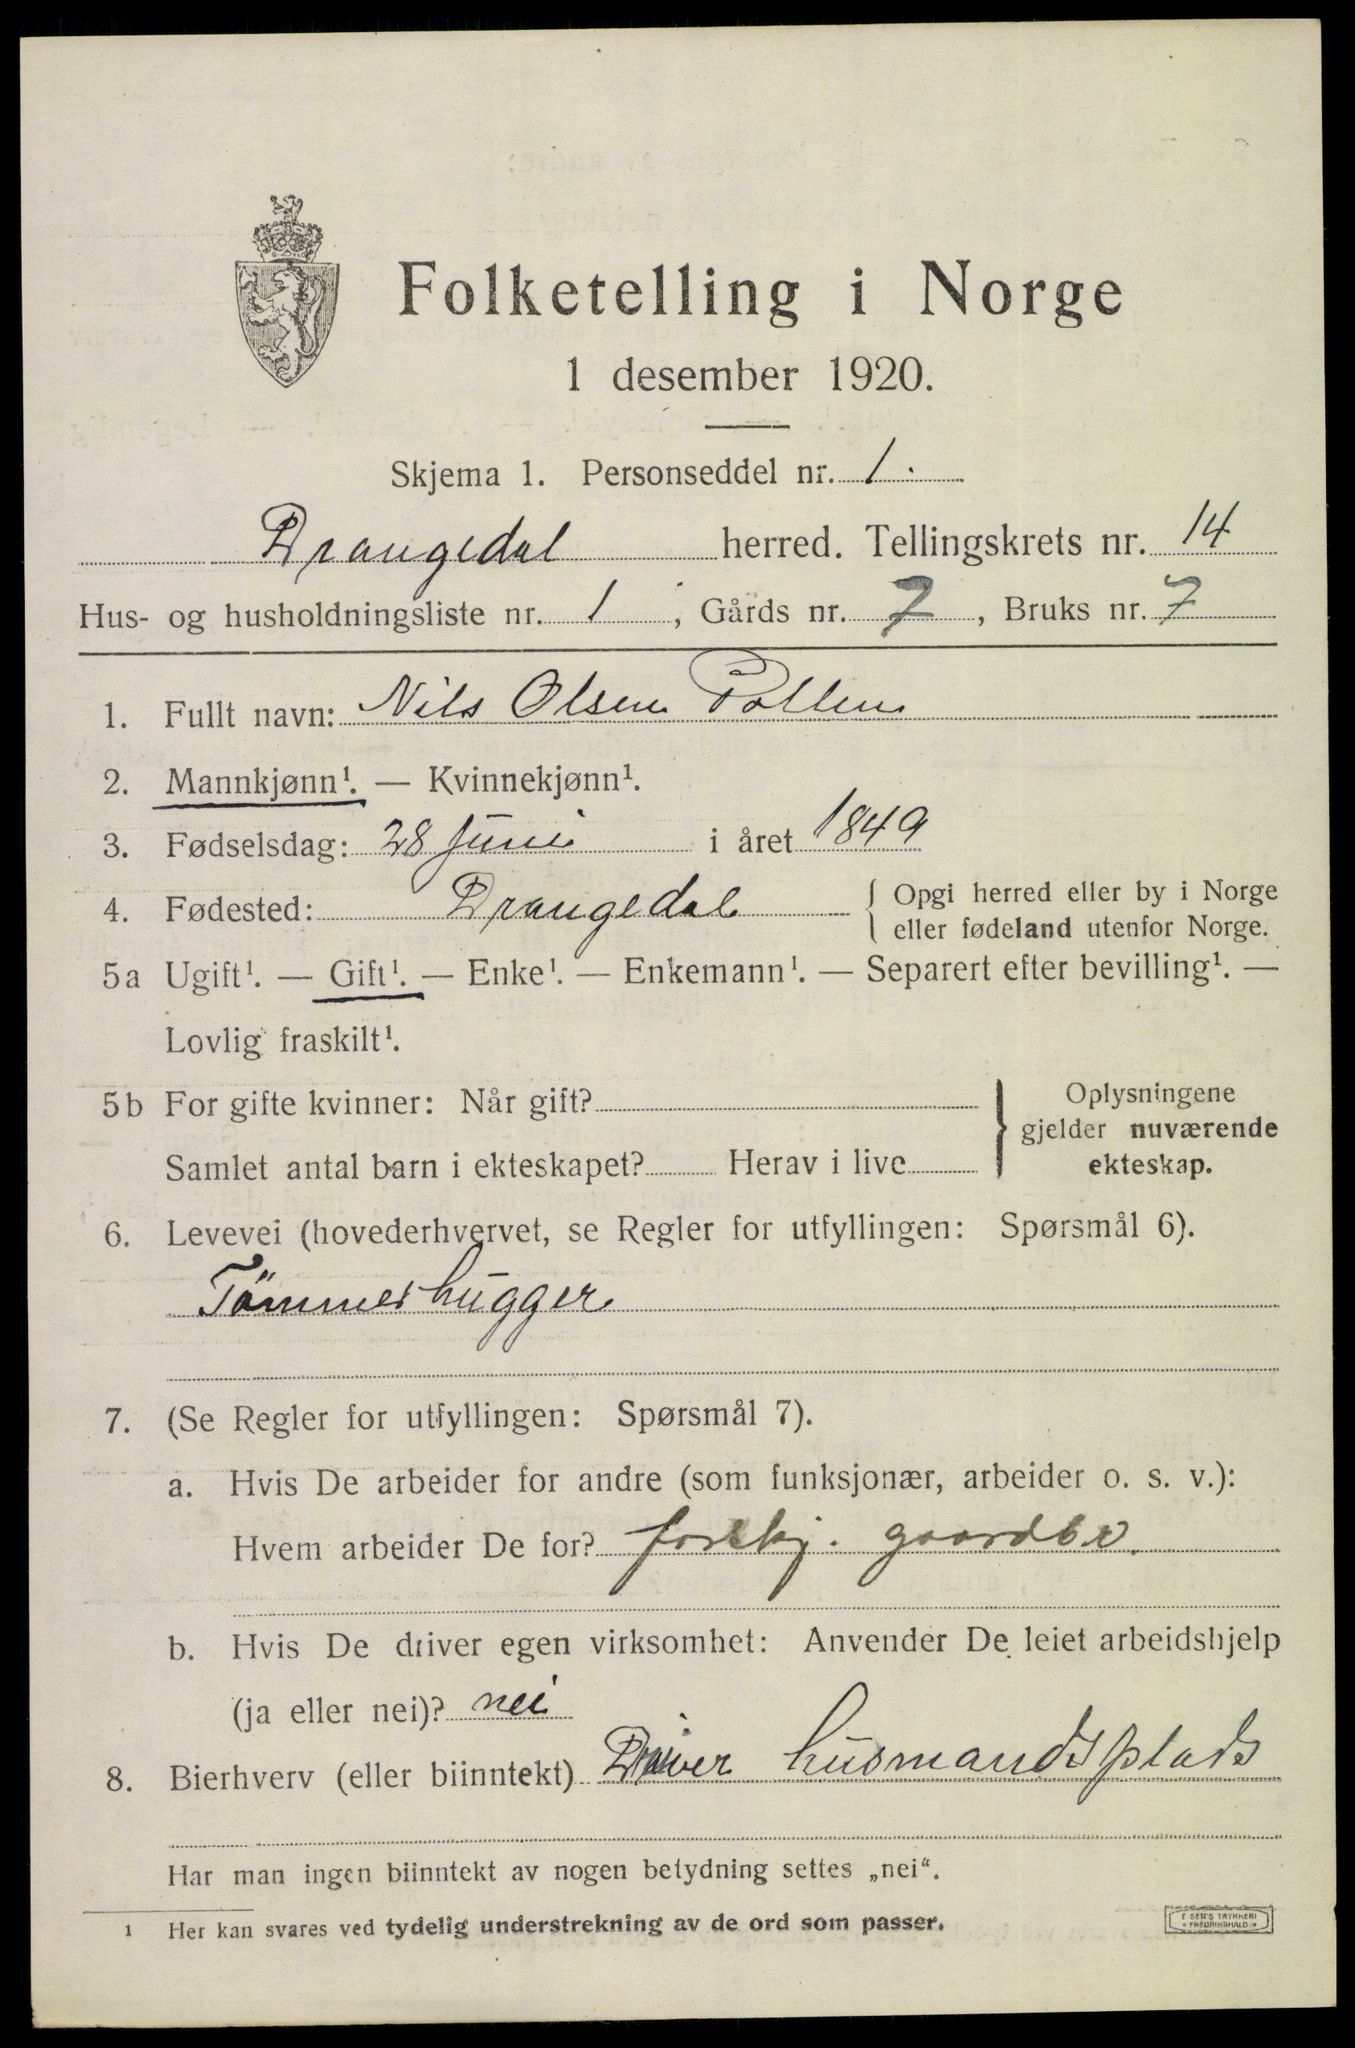 Folketelling i Norge
1 desember 1920.
Skjema 1. Personseddel nr. 1.
Drangedal herred. Tellingskrets nr. 14
Hus- og husholdningsliste nr. 1, Gårds nr. 7, Bruks nr. 7
1. Fullt navn: Nils Olsen Pollen
2. Mannkjønn¹. — Kvinnekjønn¹.
3. Fødselsdag: 28 Juni i året 1849
4. Fødested: Drangedal { Opgi herred eller by i Norge
eller fødeland utenfor Norge.
5a Ugift¹. — Gift¹. — Enke¹. — Enkemann¹. — Separert efter bevilling¹. —
Lovlig fraskilt¹.
5b For gifte kvinner: Når gift? } Oplysningene
gjelder nuværende
Samlet antal barn i ekteskapet? Herav i live ekteskap.
6. Levevei (hovederhvervet, se Regler for utfyllingen: Spørsmål 6).
Tömmerhugger
7. (Se Regler for utfyllingen: Spørsmål 7).
a. Hvis De arbeider for andre (som funksjonær, arbeider o. s. v.):
Hvem arbeider De for? forskj. gaardbr.
b. Hvis De driver egen virksomhet: Anvender De leiet arbeidshjelp
(ja eller nei)? nei
8. Bierhverv (eller biinntekt) Driver husmandsplads
Har man ingen biinntekt av nogen betydning settes „nei“.
1 Her kan svares ved tydelig understrekning av de ord som passer.
E SEM'S TRYKKERI
FREDRIKSHALD